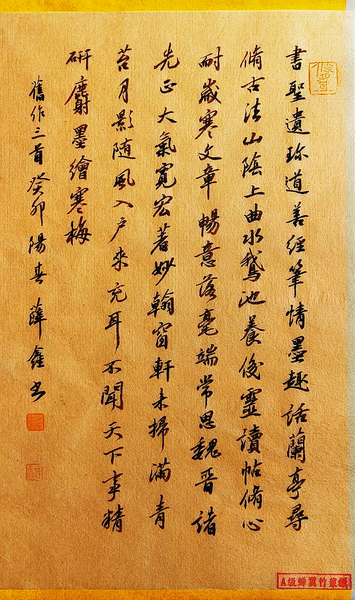 書聖遺珎道善經筆情墨趣話蘭亭尋
脩古法山陰上曲水鵝池養俊靈讀帖脩心
耐歲寒文章暢意落毫端常思魏晉諸
先正大氣寬宏著妙翰窗軒未掃滿青
苔月影随風入户來充耳不聞天下事精
研麝墨繪寒梅
舊作三首癸卯陽春薛鑫书
A級蟬翼竹